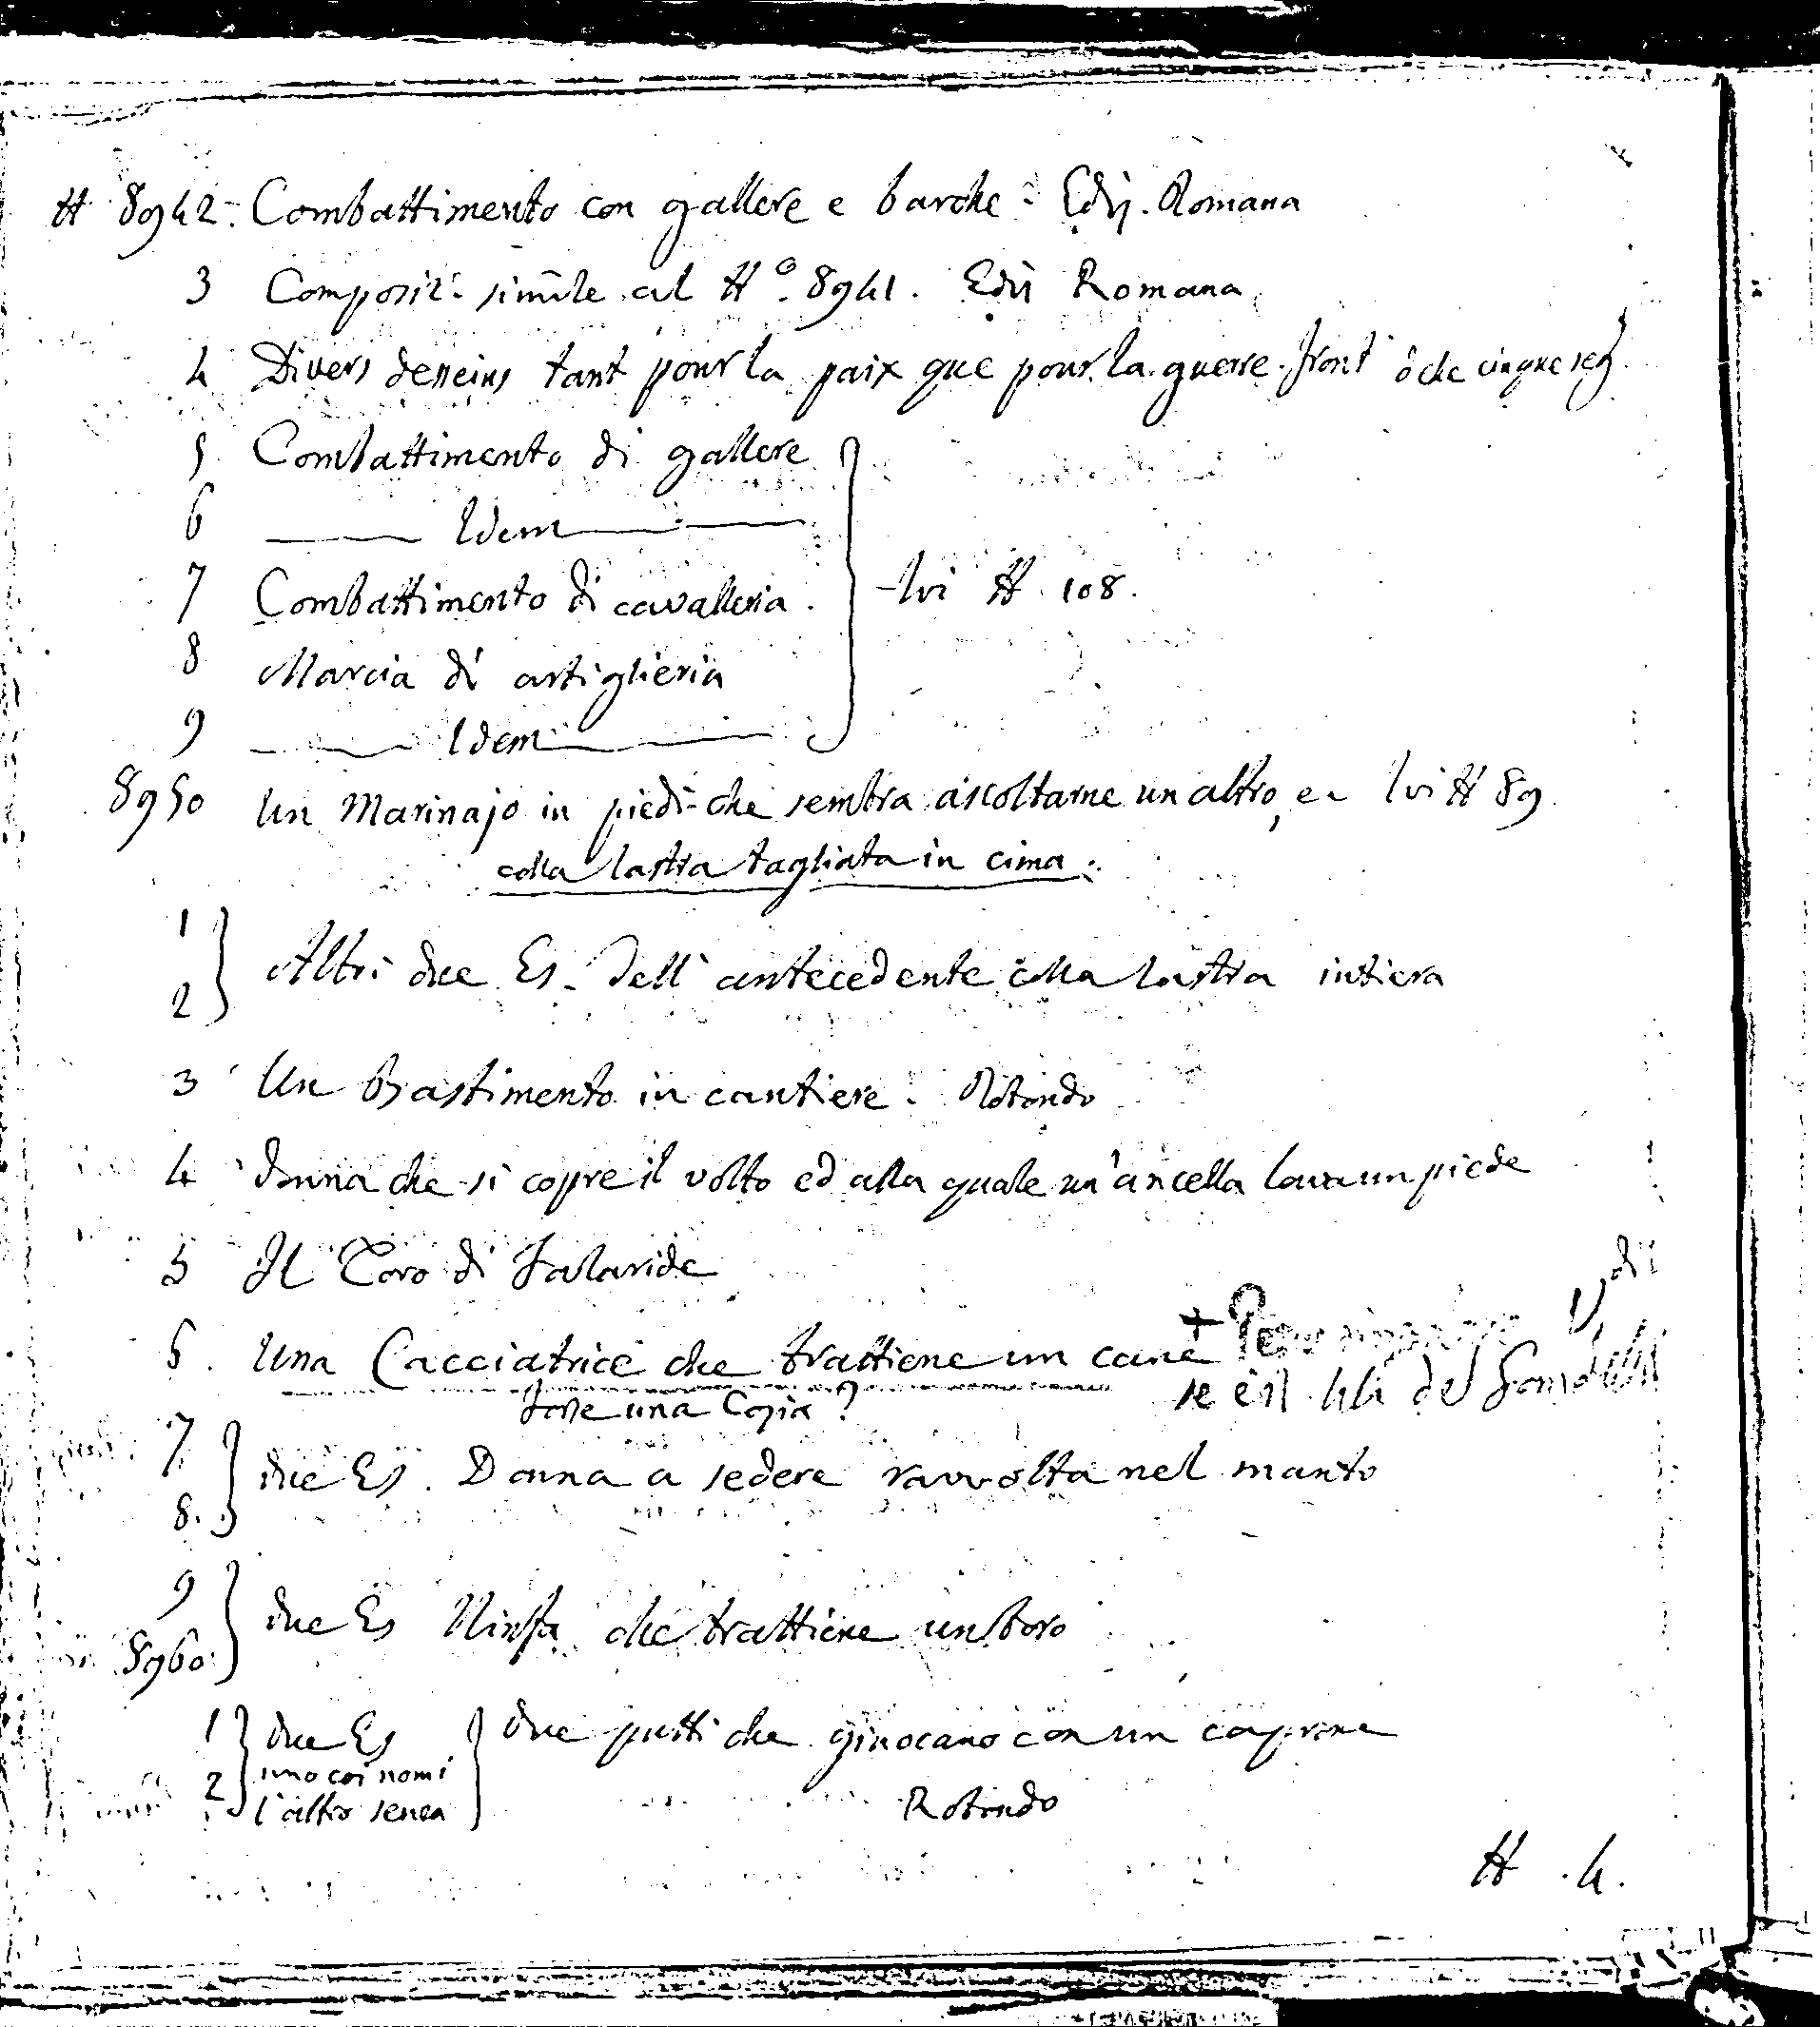 # 8942. Combattimento con gallere e barche - Ediz. Romana
3 Composiz. simile al #o. 8941. Ediz Romana
4 Divers desseins tant pour la paix que pour la guerre. front o che cinque seg.
5 Combattimento di gallere
6 Idem
7 Combattimento di cavalleria. - lvi # 108.
8 Marcia di artiglieria
9 Idem
8950 Un Marinajo in piedi che sembra ascoltarne un altro, e - lvi # 89
colla lastra tagliata in cima.
1
2 Altri due Es. dell'antecedente colla lastra intiera
3 Un Bastimento in cantiere. Rotondo
4 donna che si copre il volto ed alla quale un'ancella lava un piede
5 Il Toro di Falaride
6. Una Cacciatrice che trattiene un cane +
forse una Copia?
se è il 44 del
7
8. due Es. Donna a sedere ravvolta nel manto
9
8960 due Es Ninfa che trattiene un toro
1 due Es due putti che giuocano con un caprone
uno coi nomi
2 l'altro senza Rotondo
# . 4.